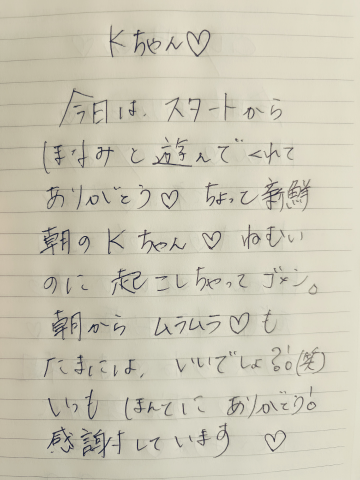 Kちゃん♡
今日は、スタートから
ほなみと遊んでくれて
ありがとう♡ ちょって新鮮
朝のKちゃん♡ ねむい
のに起こしちゃってゴメン。
朝から ムラムラ♡も
たまには、いいでしょ?!(笑)
いつも ほんてにありがとう!
感謝しています ♡